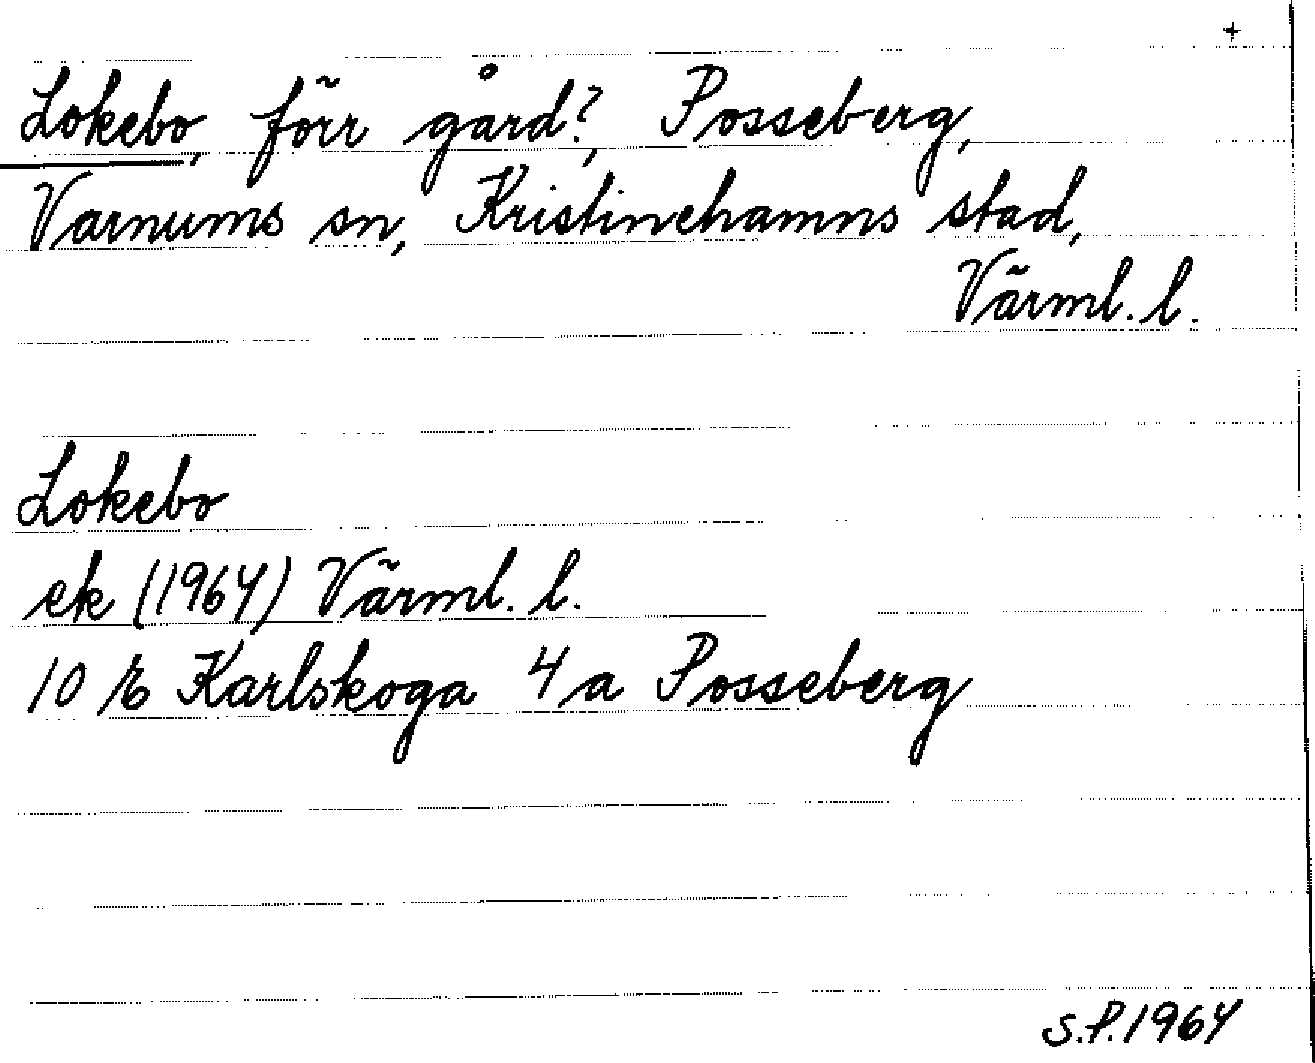 +
Lokebo, förr gård?, Posseberg,
Varnums sn, Kristinehamns stad,
Värml. l.
Lokebo
ek (1964) Värml. l.
10 E Karlskoga 4 a Posseberg
S.P. 1964